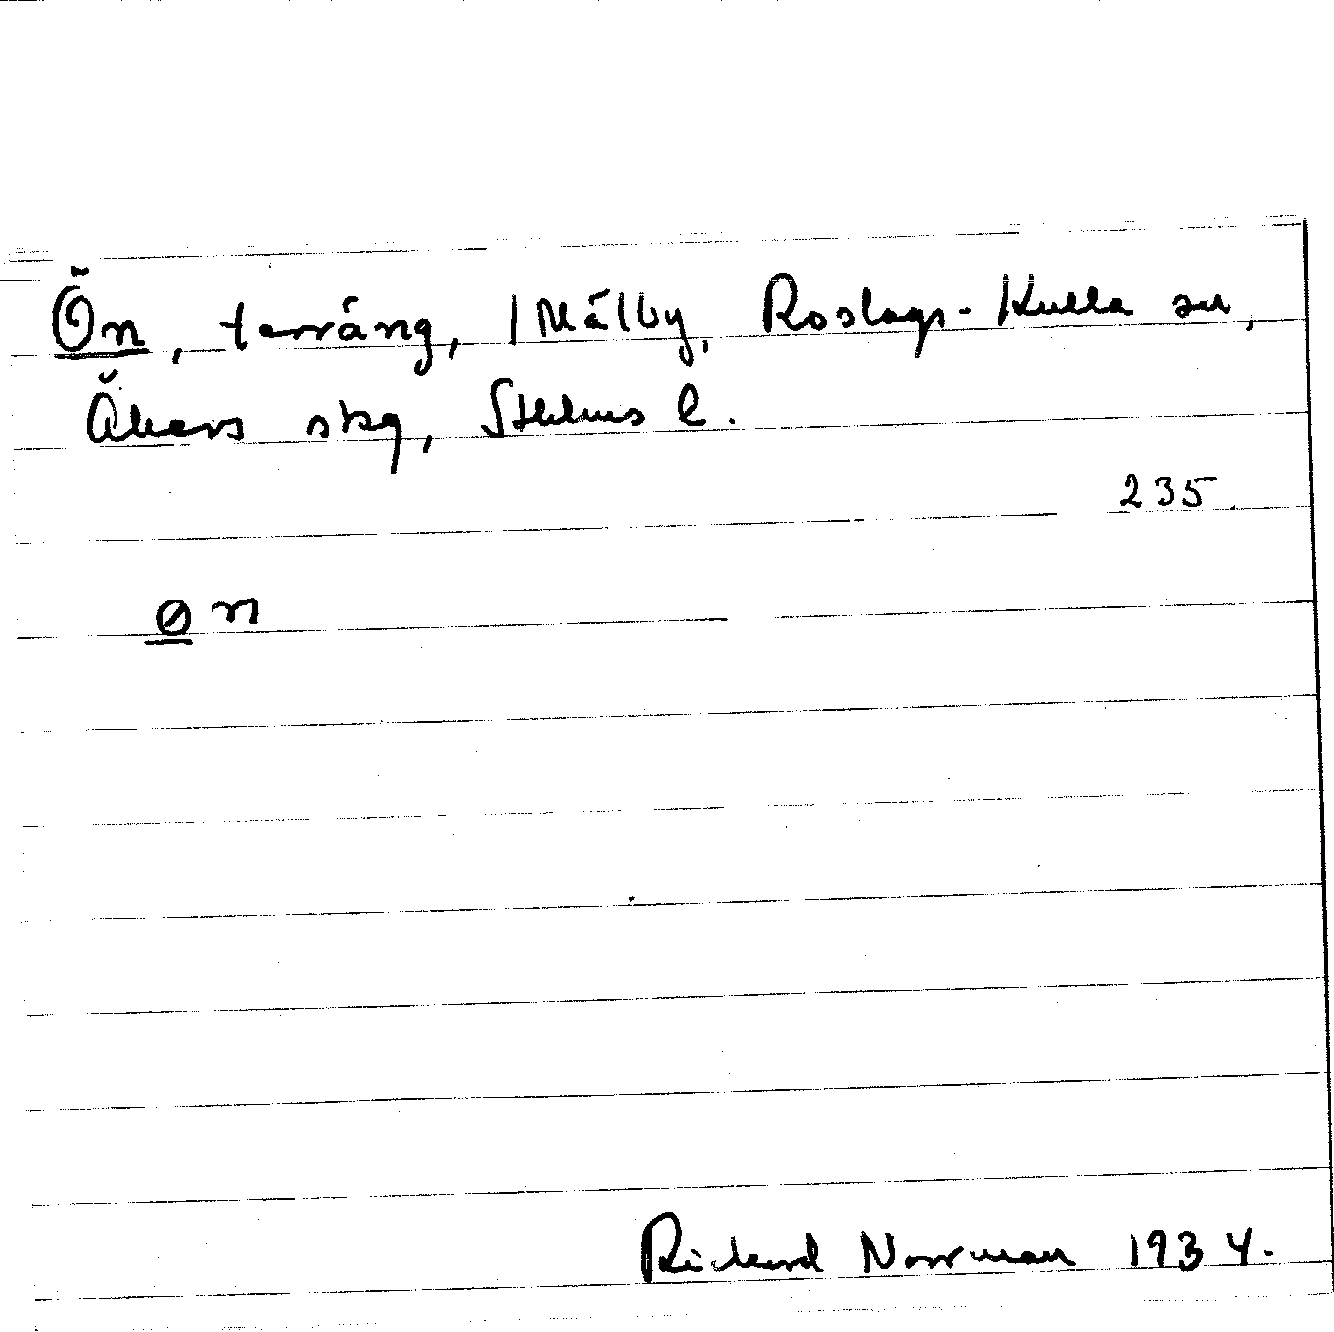 Ön, terräng, Målby, Roslags-Kulla sn,
Åkers skg, Sthlms l.
235.
øn
Rickard Norrman 1934.